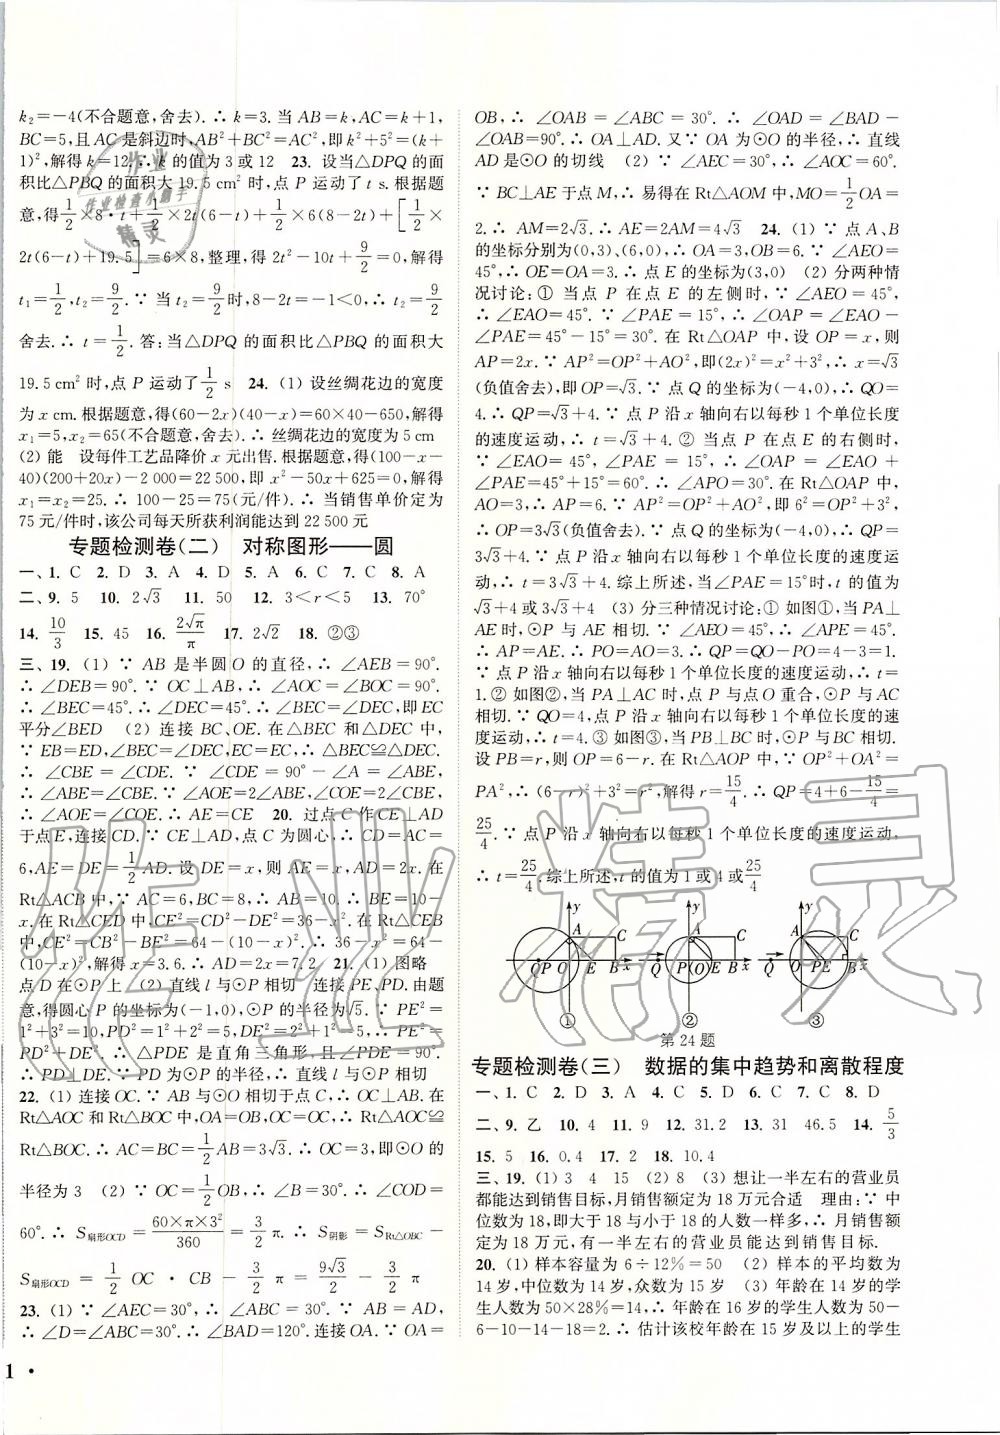 k₂=-4(不合题意,舍去).∴k=3.当AB=k,AC=k+1,
BC=5,且AC是斜边时,AB²+BC²=AC²,即k²+5²=(k+
1)²,解得k=12.∴k的值为3或12 23. 设当△DPQ的面
积比△PBQ的面积大19.5 cm²时,点P运动了t s.根据题
意,得1/2×8·t+1/2×2t(6-t)+1/2×6(8-2t)+[1/2×
2t(6-t)+19.5]=6×8,整理,得2t²-10t+9/2=0,解得
t₁=1/2,t₂=9/2.∵当t=9/2时,8-2t=-1<0,∴t₂=9/2
舍去.∴t=1/2.答:当△DPQ的面积比△PBQ的面积大
19.5 cm²时,点P运动了1/2 s 24. (1) 设丝绸花边的宽度
为x cm.根据题意,得(60-2x)(40-x)=60×40-650,解得
x₁=5,x₂=65(不合题意,舍去).∴丝绸花边的宽度为5 cm
(2) 能 设每件工艺品降价x元出售.根据题意,得(100-x-
40)(200+20x)-2 000=22 500,即x²-50x+625=0,解得
x₁=x₂=25.∴100-25=75(元/件).∴当销售单价定为
75元/件时,该公司每天所获利润能达到22 500元
专题检测卷(二) 对称图形——圆
一、1. C 2. D 3. A 4. D 5. A 6. C 7. C 8. A
二、9. 5 10. 2√3 11. 50 12. 3<r<5 13. 70°
14. 10/3 15. 45 16. 2√π/π 17. 2√2 18. ②③
三、19. (1) ∵AB是半圆O的直径,∴∠AEB=90°.
∴∠DEB=90°.∵OC⊥AB,∴∠AOC=∠BOC=90°.
∴∠BEC=45°.∴∠DEC=45°.∴∠BEC=∠DEC,即EC
平分∠BED (2) 连接BC、OE.在△BEC和△DEC中,
∵EB=ED,∠BEC=∠DEC,EC=EC,∴△BEC≌△DEC.
∴∠CBE=∠CDE.∵∠CDE=90°-∠A=∠ABE,
∴∠ABE=∠CBE.∵∠AOE=2∠ABE,∠COE=2∠CBE,
∴∠AOE=∠COE.∴AE=CE 20. 过点C作CE⊥AD
于点E,连接CD.∵CE⊥AD,点C为圆心,∴CD=AC=
6,AE=DE=1/2AD.设DE=x,则AE=x,AD=2x.在
Rt△ACB中,∵AC=6,BC=8,∴AB=10.∴BE=10-
x.在Rt△CED中,CE²=CD²-DE²=36-x².在Rt△CEB
中,CE²=CB²-BE²=64-(10-x)².∴36-x²=64-
(10-x)²,解得x=3.6.∴AD=2x=7.2 21. (1) 图略
点D在⊙P上 (2) 直线l与⊙P相切 连接PE、PD.由题
意,得圆心P的坐标为(-1,0),⊙P的半径为√5.∵PE²=
1²+3²=10,PD²=1²+2²=5,DE²=2²+1²=5,∴PE²=
PD²+DE².∴△PDE是直角三角形,且∠PDE=90°.
∴PD⊥l.∵点D在⊙P上,∴直线l与⊙P相切
22. (1) 连接OC.∵AB与⊙O相切于点C,∴∠ACO=∠BCO=90°.在
Rt△AOC和Rt△BOC中,OA=OB,OC=OC,∴Rt△AOC≌
Rt△BOC.∴AC=BC=1/2AB=3√3.∴OC=3,即⊙O的
半径为3 (2) ∵OC=1/2OB,∴∠B=30°.∴∠COD=
60°.∴S扇形OCD=60×π×3²/360=3/2π.∴S阴影=S Rt△OBC-
S扇形OCD=1/2OC·CB-3/2π=9√3/2-3/2π
23. (1) ∵∠AEC=30°,∴∠ABC=30°.∵AB=AD,
∴∠D=∠ABC=30°.∴∠BAD=120°.连接OA.∵OA=
OB,∴∠OAB=∠ABC=30°.∴∠OAD=∠BAD-
∠OAB=90°.∴OA⊥AD.又∵OA为⊙O的半径,∴直线
AD是⊙O的切线 (2) ∵∠AEC=30°,∴∠AOC=60°.
∵BC⊥AE于点M,∴易得在Rt△AOM中,MO=1/2OA=
2.∴AM=2√3.∴AE=2AM=4√3 24. (1) ∵点A、B
的坐标分别为(0,3)、(6,0),∴OA=3,OB=6.∵∠AEO=
45°,∴OE=OA=3.∴点E的坐标为(3,0) (2) 分两种情
况讨论:① 当点P在点E的左侧时,∵∠AEO=45°,
∴∠EAO=45°.∵∠PAE=15°,∴∠OAP=∠EAO-
∠PAE=45°-15°=30°.在Rt△OAP中,设OP=x,则
AP=2x.∵AP²=OP²+AO²,即(2x)²=x²+3²,∴x=√3
(负值舍去),即OP=√3.∵点Q的坐标为(-4,0),∴QO=
4.∴QP=√3+4.∵点P沿x轴向右以每秒1个单位长度
的速度运动,∴t=√3+4.② 当点P在点E的右侧时,
∵∠EAO=45°,∠PAE=15°,∴∠OAP=∠EAO+
∠PAE=45°+15°=60°.∴∠APO=30°.在Rt△OAP中,
AO=3,∴AP=6.∵AP²=OP²+AO²,即6²=OP²+3²,
∴OP=3√3(负值舍去).∵点Q的坐标为(-4,0),∴QO=
4.∴QP=3√3+4.∵点P沿x轴向右以每秒1个单位长度的速度运
动,∴t=3√3+4.综上所述,当∠PAE=15°时,t的值为
√3+4或3√3+4 (3) 分三种情况讨论:① 如图①,当PA⊥
AE时,⊙P与AE相切.∵∠AEO=45°,∴∠APE=45°.
∴AP=AE.∴PO=AO=3.∴QP=QO-PO=4-3=1.
∵点P沿x轴向右以每秒1个单位长度的速度运动,∴t=
1.② 如图②,当PA⊥AC时,点P与点O重合,⊙P与AC
相切.∵QO=4,点P沿x轴向右以每秒1个单位长度的速
度运动,∴t=4.③ 如图③,当PB⊥BC时,⊙P与BC相切.
设PB=r,则OP=6-r.在Rt△AOP中,∵OP²+OA²=
PA²,∴(6-r)²+3²=r²,解得r=15/4.∴QP=4+6-15/4=
25/4.∵点P沿x轴向右以每秒1个单位长度的速度运动,
∴t=25/4.综上所述,t的值为1或4或25/4
y A C Q P O E B x ①
y A C Q P(O) E B x ②
y A C Q O P E B x ③
第24题
专题检测卷(三) 数据的集中趋势和离散程度
一、1. C 2. D 3. A 4. C 5. D 6. C 7. C 8. D
二、9. 乙 10. 4 11. 9 12. 31.2 13. 31 46.5 14. 5/3
15. 5 16. 0.4 17. 2 18. 10.4
三、19. (1) 3 4 15 (2) 8 (3) 想让一半左右的营业员
都能达到销售目标,月销售额定为18万元合适 理由:∵中
位数为18,即大于18与小于18的人数一样多,∴月销售额
定为18万元,有一半左右的营业员能达到销售目标.
20. (1) 样本容量为6÷12%=50 (2) 样本的平均数为
14岁,中位数为14岁,众数为15岁 (3) 年龄在14岁的学
生人数为50×28%=14,∴年龄在16岁的学生人数为50-
6-10-14-18=2.∴估计该校年龄在15岁及以上的学生
1 ·
作业
作业检查小助手
精灵
作业精灵